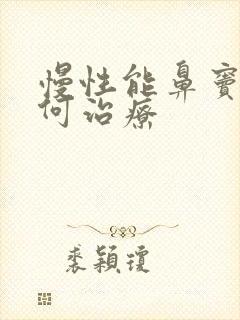 慢性能鼻竇
何治療
裘穎瓊